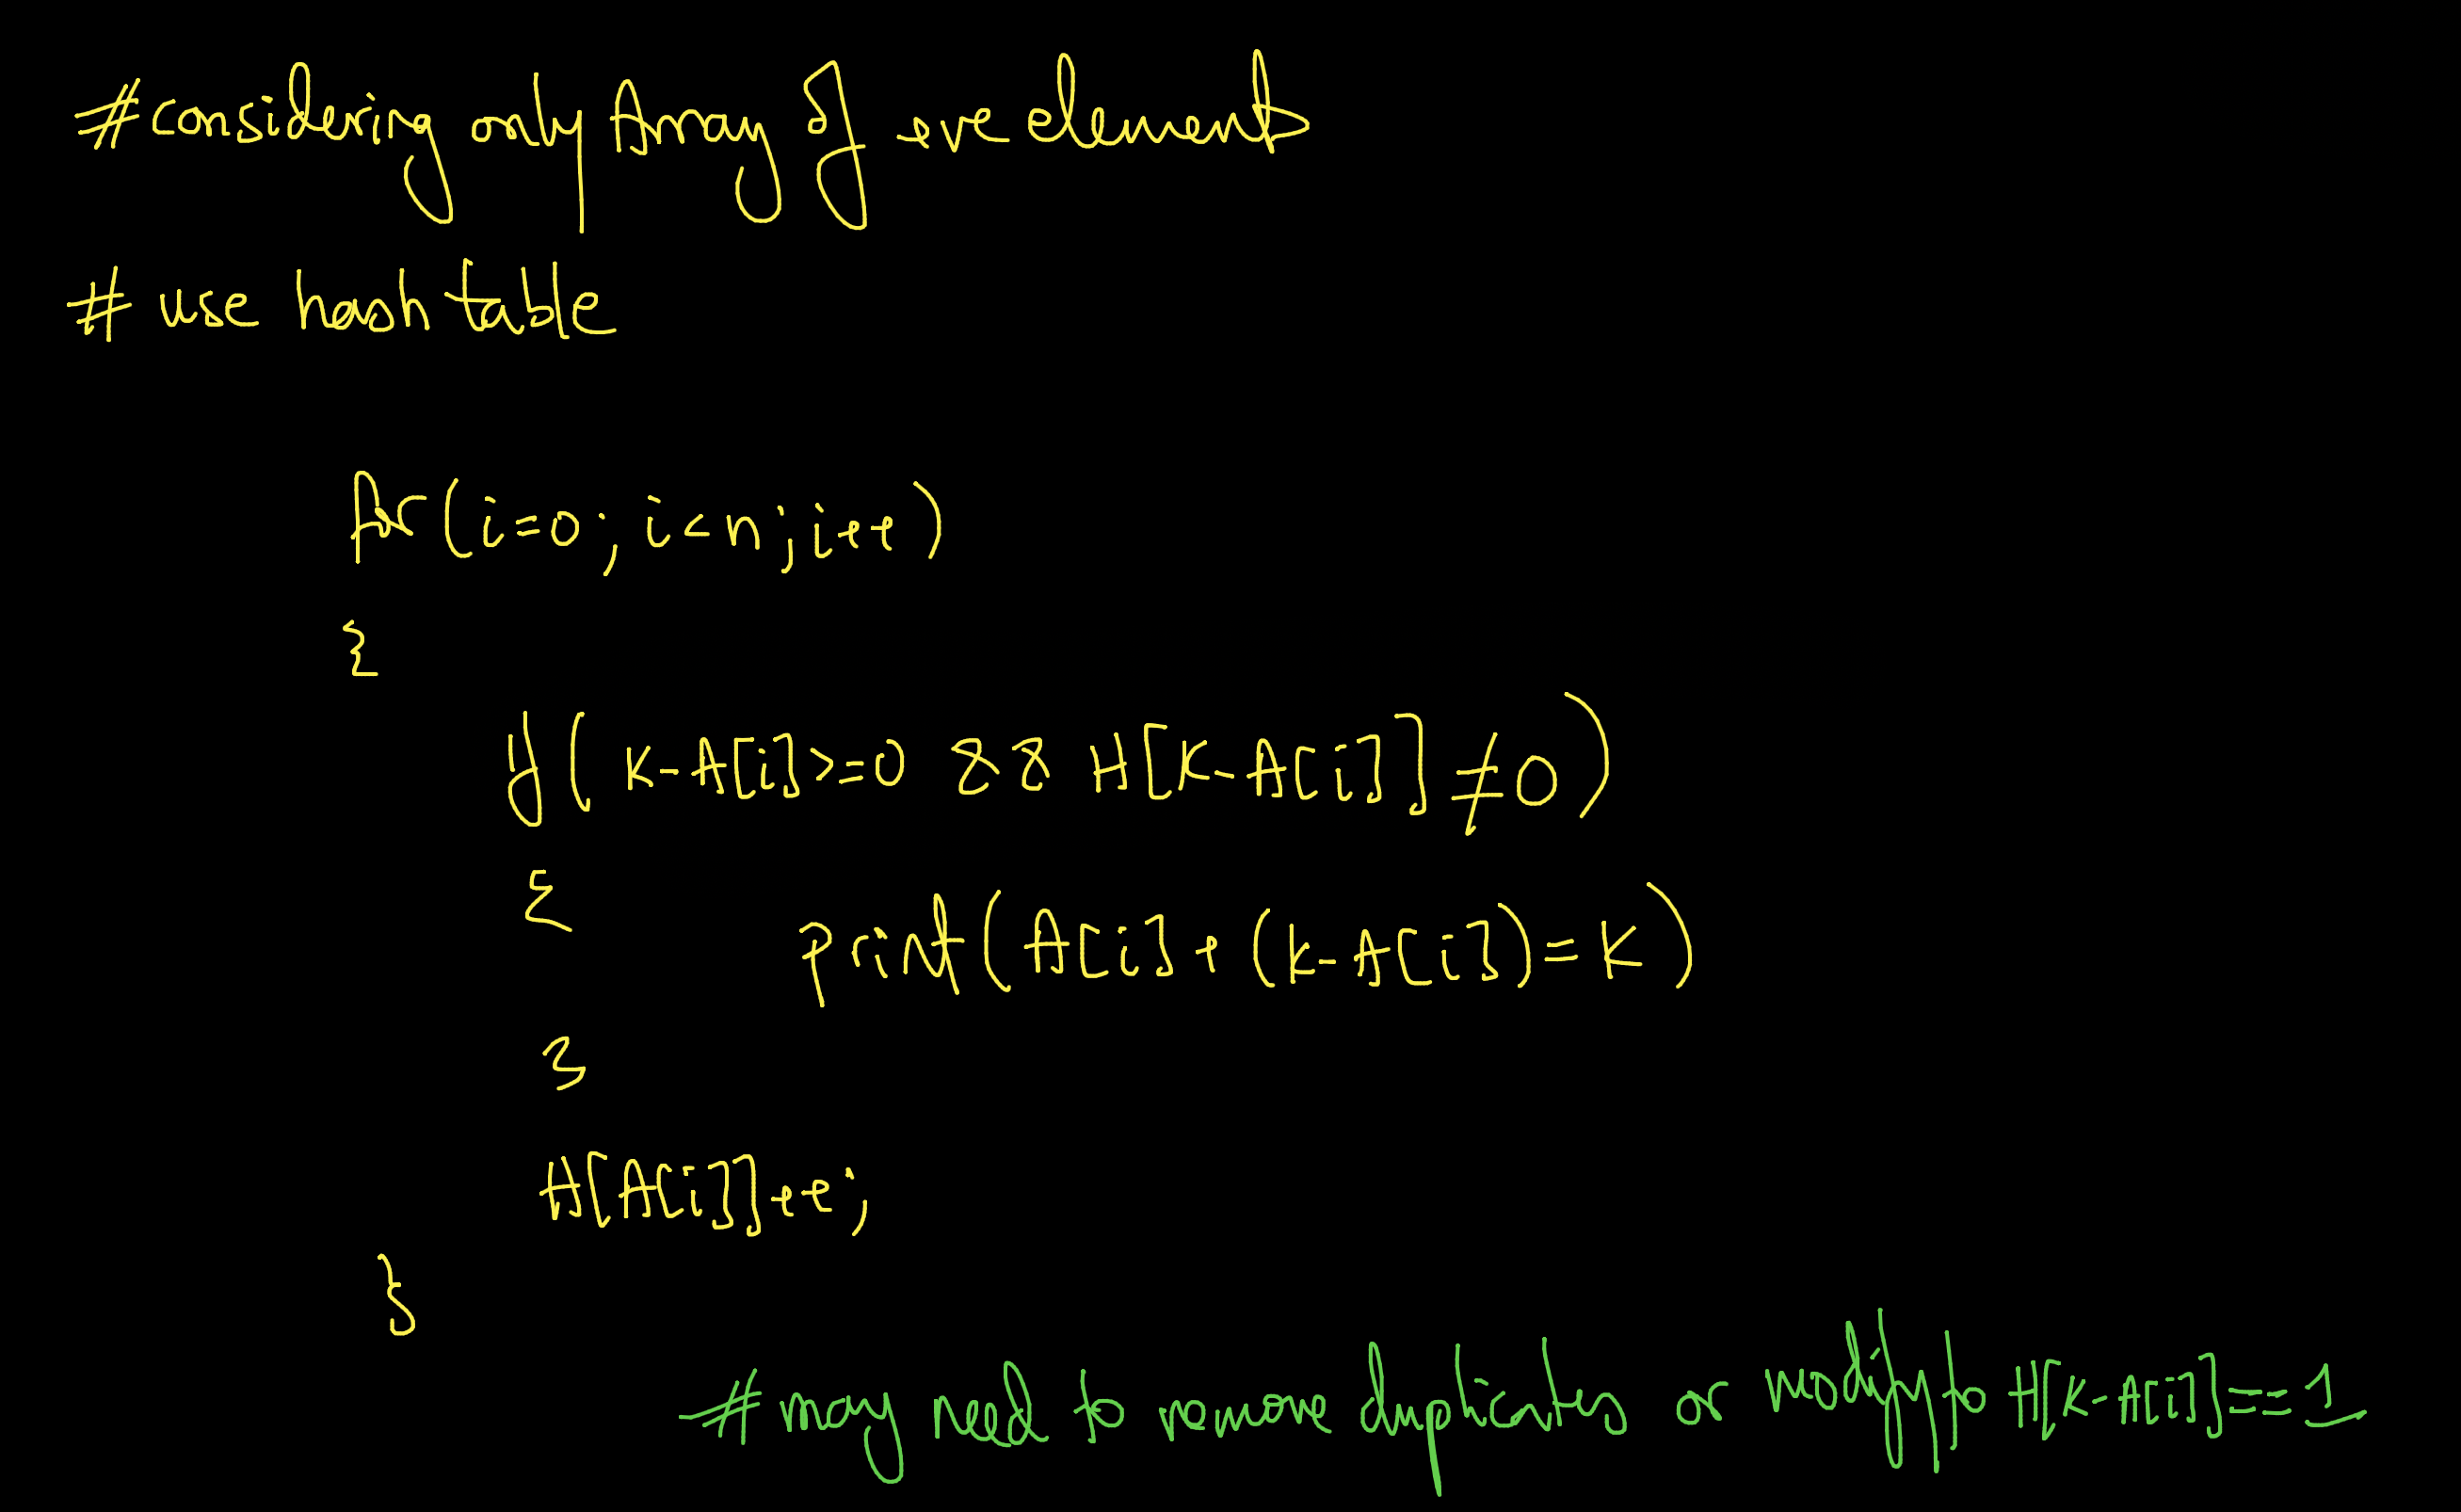 #considering only Array of +ve elements
# use hash table
for(i=0; i<n; i++)
{
if( K-A[i]>=0 && H[K-A[i]] ≠0)
{
print(A[i]+(K-A[i])=K)
}
H[A[i]]++;
}
#may need to remove duplicates or modify to H[K-A[i]]==1